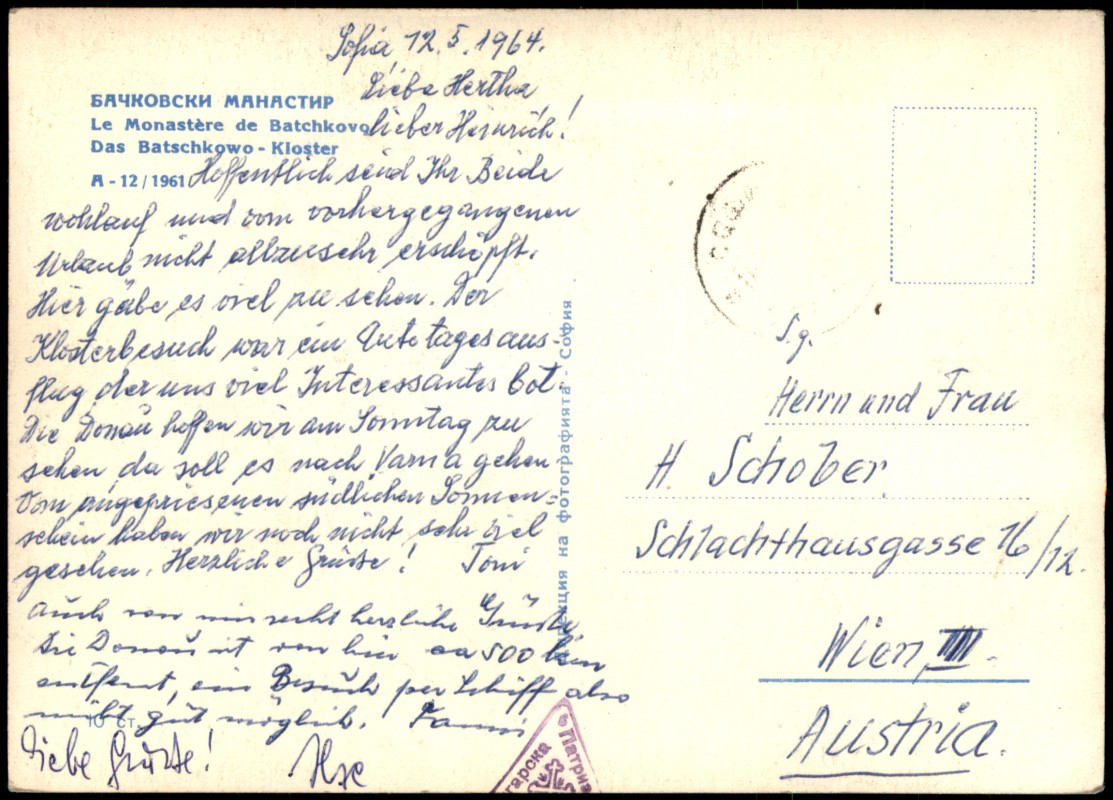 Sofia, 12.5.1964.
Liebe Hertha
lieber Heinrich!
БАЧКОВСКИ МАНАСТИР
Le Monastère de Batchkovo
Das Batschkowo - Kloster
А - 12/1961
Hoffentlich seid Ihr Beide
wohlauf und vom vorhergegangenen
Urlaub nicht allzusehr erschöpft.
Hier gäbe es viel zu sehen. Der
Klosterbesuch war ein Autotagesaus-
flug der uns viel Interessantes bot.
Die Donau hoffen wir am Sonntag zu
sehen, da soll es nach Varna gehen
Vom angepriesenen südlichen Sonnen=
schein haben wir noch nicht sehr viel
gesehen. Herzliche Grüsse! Toni
Auch von mir recht herzliche Grüsse
Die Donau ist von hier ca 500 km
entfernt, ein Besuch per Schiff also
nicht gut möglich.
10 ст.
Liebe Grüsse! Ilse
на фотографията - София
S.g.
Herrn und Frau
H. Schober
Schlachthausgasse 16/12.
Wien, III.
Austria.